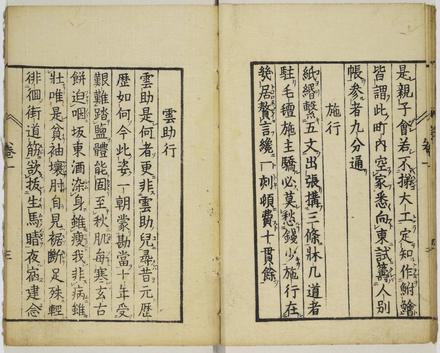 是親子會若不據大工定知作鮒鱠
皆謂此町内空家悉向東試筭人別
帳参者九分通
施行
紙縉繫五文出張搆三條牀几道者
駐毛氊施主驕必莫愁錢少施行在
幾居贅言纔一刻頃費十貫餘
雲助行
雲助是何者更非雲助兒尋昔元歴
歴如何今此姿一朝蒙勘當十年受
艱難踏鹽體能固至秋肌每寒玄古
餅迫咽坂東酒染身雖瘦我非病雖
壯唯是貧袖壞肘自見裾斷足殊輕
徘徊街道筋欲拔生馬睛夜宿建念
卷一
三